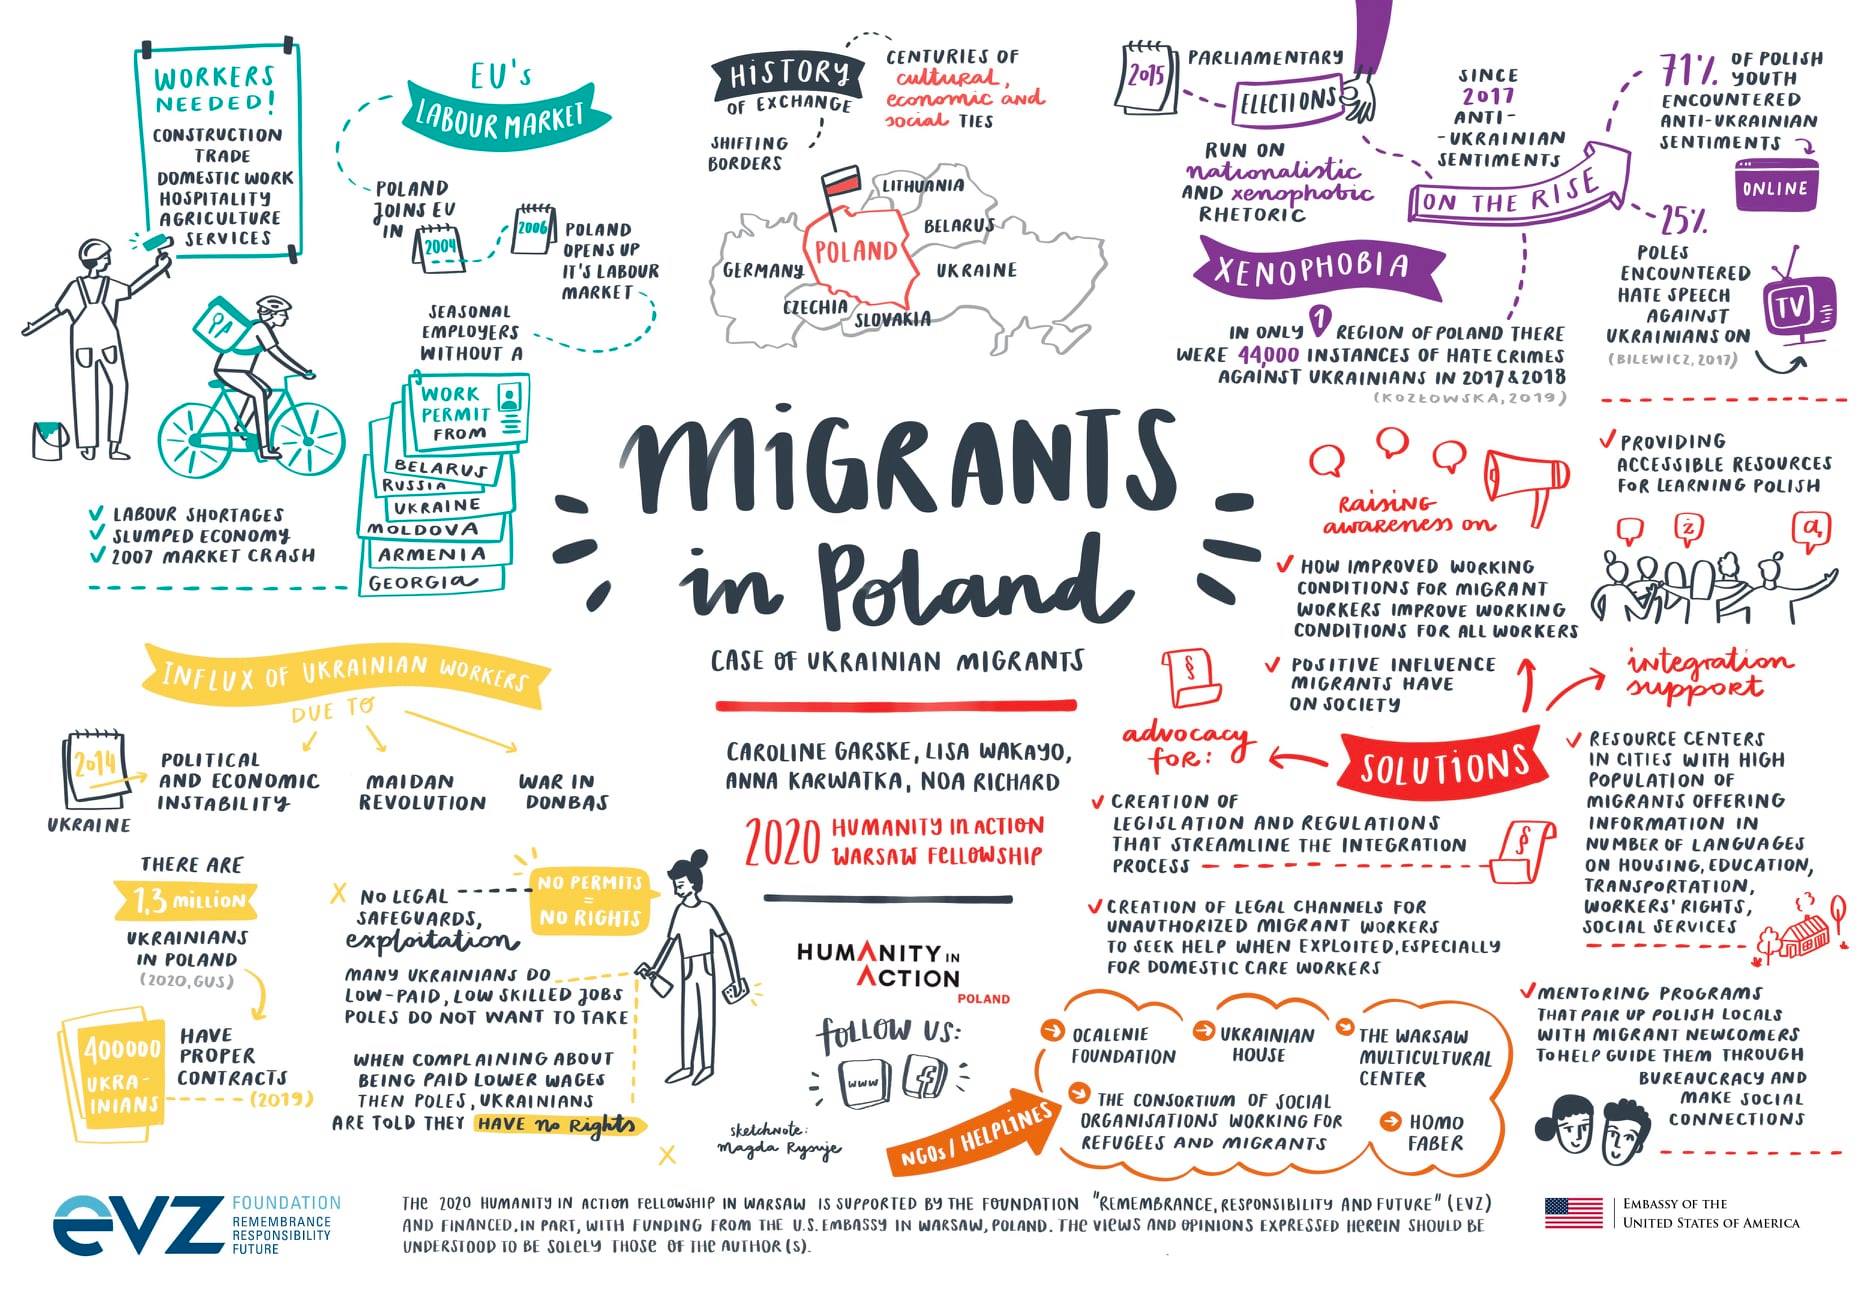 WORKERS
NEEDED!
CONSTRUCTION
TRADE
DOMESTIC WORK
HOSPITALITY
AGRICULTURE
SERVICES
EU's
LABOUR MARKET
POLAND
JOINS EU
IN
2004
2006
POLAND
OPENS UP
IT'S LABOUR
MARKET
SEASONAL
EMPLOYERS
WITHOUT A
WORK
PERMIT
FROM
BELARUS
RUSSIA
UKRAINE
MOLDOVA
ARMENIA
GEORGIA
LABOUR SHORTAGES
SLUMPED ECONOMY
2007 MARKET CRASH
HISTORY
OF EXCHANGE
CENTURIES OF
cultural,
economic and
social TIES
SHIFTING
BORDERS
LITHUANIA
BELARUS
POLAND
GERMANY
UKRAINE
CZECHIA
SLOVAKIA
2015
PARLIAMENTARY
ELECTIONS
RUN ON
nationalistic
AND xenophobic
RHETORIC
SINCE
2017
ANTI-
-UKRAINIAN
SENTIMENTS
ON THE RISE
71% OF POLISH
YOUTH
ENCOUNTERED
ANTI-UKRAINIAN
SENTIMENTS
ONLINE
25%
POLES
ENCOUNTERED
HATE SPEECH
AGAINST
UKRAINIANS ON
(BILEWICZ, 2017)
TV
XENOPHOBIA
IN ONLY 1 REGION OF POLAND THERE
WERE 44,000 INSTANCES OF HATE CRIMES
AGAINST UKRAINIANS IN 2017 & 2018
(KOZŁOWSKA, 2019)
MIGRANTS
in Poland
CASE OF UKRAINIAN MIGRANTS
CAROLINE GARSKE, LISA WAKAYO,
ANNA KARWATKA, NOA RICHARD
2020 HUMANITY IN ACTION
WARSAW FELLOWSHIP
HUMANITY IN
ACTION
POLAND
FOLLOW US:
WWW
f
sketchnote:
Magda Rysuje
INFLUX OF UKRAINIAN WORKERS
DUE TO
2014
UKRAINE
POLITICAL
AND ECONOMIC
INSTABILITY
MAIDAN
REVOLUTION
WAR IN
DONBAS
THERE ARE
1,3 million
UKRAINIANS
IN POLAND
(2020, GUS)
400000
UKRA-
INIANS
HAVE
PROPER
CONTRACTS
(2019)
X NO LEGAL
SAFEGUARDS,
exploitation
NO PERMITS
=
NO RIGHTS
MANY UKRAINIANS DO
LOW-PAID, LOW SKILLED JOBS
POLES DO NOT WANT TO TAKE
WHEN COMPLAINING ABOUT
BEING PAID LOWER WAGES
THEN POLES, UKRAINIANS
ARE TOLD THEY HAVE no Rights
X
Raising
awareness on
HOW IMPROVED WORKING
CONDITIONS FOR MIGRANT
WORKERS IMPROVE WORKING
CONDITIONS FOR ALL WORKERS
POSITIVE INFLUENCE
MIGRANTS HAVE
ON SOCIETY
PROVIDING
ACCESSIBLE RESOURCES
FOR LEARNING POLISH
ż
ą
integration
support
SOLUTIONS
§
advocacy
for:
CREATION OF
LEGISLATION AND REGULATIONS
THAT STREAMLINE THE INTEGRATION
PROCESS
§
CREATION OF LEGAL CHANNELS FOR
UNAUTHORIZED MIGRANT WORKERS
TO SEEK HELP WHEN EXPLOITED, ESPECIALLY
FOR DOMESTIC CARE WORKERS
RESOURCE CENTERS
IN CITIES WITH HIGH
POPULATION OF
MIGRANTS OFFERING
INFORMATION IN
NUMBER OF LANGUAGES
ON HOUSING, EDUCATION,
TRANSPORTATION,
WORKERS' RIGHTS,
SOCIAL SERVICES
MENTORING PROGRAMS
THAT PAIR UP POLISH LOCALS
WITH MIGRANT NEWCOMERS
TO HELP GUIDE THEM THROUGH
BUREAUCRACY AND
MAKE SOCIAL
CONNECTIONS
NGOs / HELPLINES
OCALENIE
FOUNDATION
UKRAINIAN
HOUSE
THE WARSAW
MULTICULTURAL
CENTER
THE CONSORTIUM OF SOCIAL
ORGANISATIONS WORKING FOR
REFUGEES AND MIGRANTS
HOMO
FABER
eVZ
FOUNDATION
REMEMBRANCE
RESPONSIBILITY
FUTURE
THE 2020 HUMANITY IN ACTION FELLOWSHIP IN WARSAW IS SUPPORTED BY THE FOUNDATION "REMEMBRANCE, RESPONSIBILITY AND FUTURE" (EVZ)
AND FINANCED, IN PART, WITH FUNDING FROM THE U.S. EMBASSY IN WARSAW, POLAND. THE VIEWS AND OPINIONS EXPRESSED HEREIN SHOULD BE
UNDERSTOOD TO BE SOLELY THOSE OF THE AUTHOR(S).
EMBASSY OF THE
UNITED STATES OF AMERICA